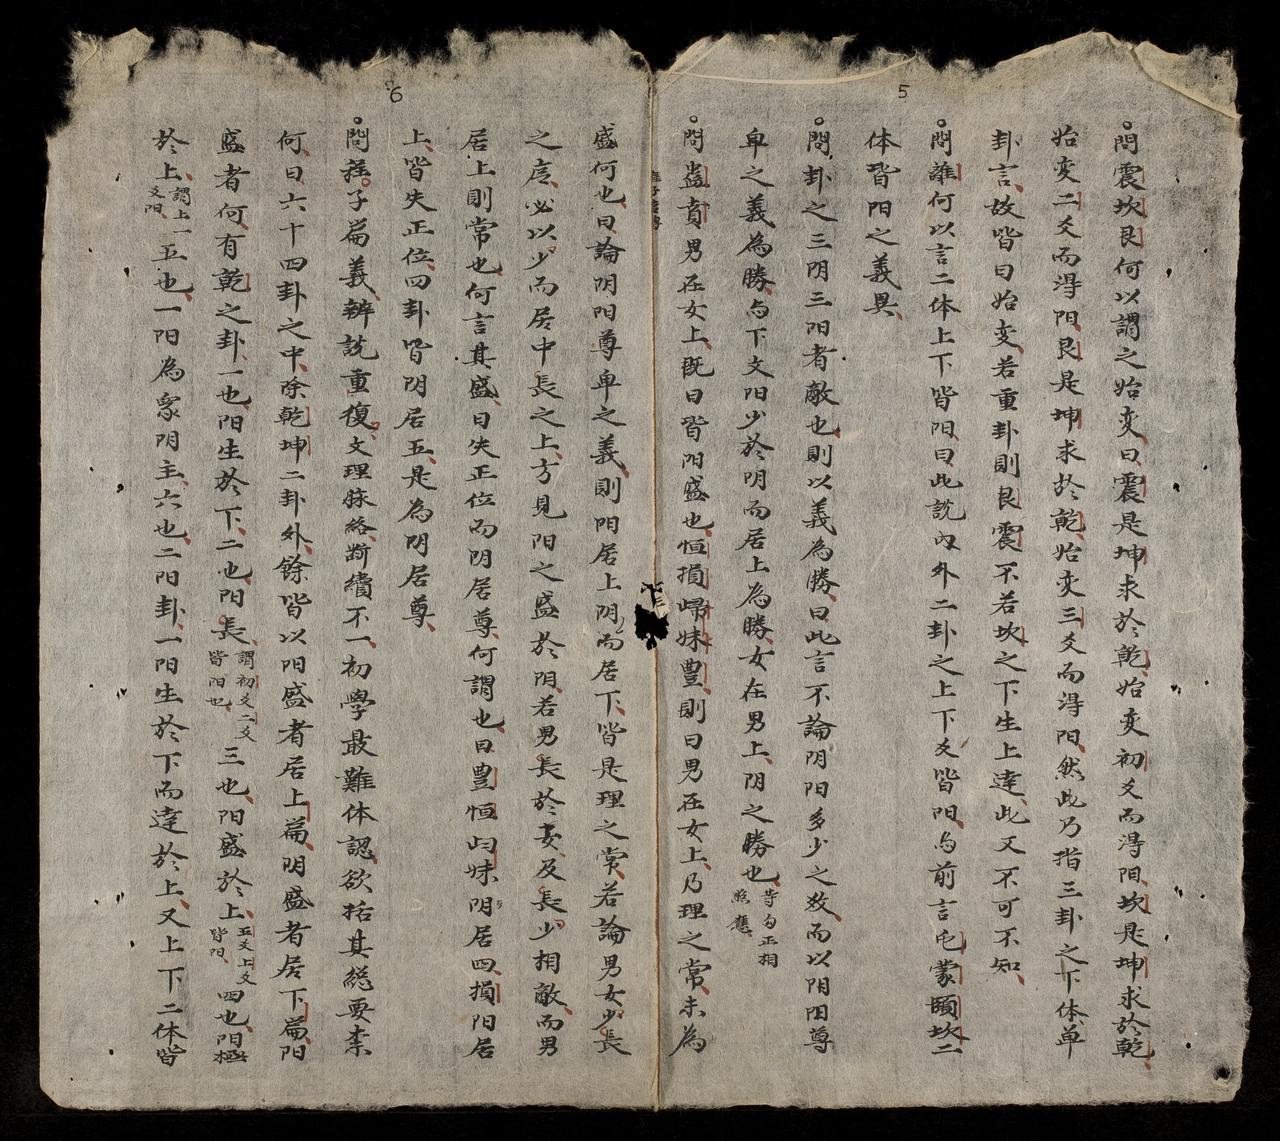 5
問震坎艮何以謂之始変曰震是坤求於乾始変初爻而淂阳坎是坤求於乾
始変二爻而淂阳艮是坤求於乾始変三爻而淂阳然此乃指三卦之下体单
卦言故皆曰始変若重卦則艮震不若坎之下生上達此又不可不知
問離何以言二体上下皆阳曰此説内外二卦之上下爻皆阳与前言屯蒙頤坎二
体皆阳之義異
問卦之三阴三阳者敵也則以義為勝曰此言不論阴阳多少之敵而以阴阳尊
卑之義為勝与下文阳少於阴而居上為勝女在男上阴之勝也
等句正相
照應
問蠱賁男在女上既曰皆阳盛也恒損歸妹豊則曰男在女上乃理之常未為
6
盛何也曰論阴阳尊卑之義則阳居上阴而居下皆是理之常若論男女少長
之序必以少而居中長之上方見阳之盛於阴若男長於女及長少相敵而男
居上則常也何言其盛曰失正位而阴居尊何謂也曰豊恒归妹阴居四損阳居
上皆失正位四卦皆阴居五是為阴居尊
問程子篇義辨説重復文理脉絡断續不一初學最難体認欲括其總要柰
何曰六十四卦之中除乾坤二卦外餘皆以阳盛者居上篇阴盛者居下篇阳
盛者何有乾之卦一也阳生於下二也阳長
謂初爻二爻
皆阳也
三也阳盛於上
五爻上爻
皆阳
四也阳極
於上
謂上一
爻阳
五也一阳為衆阴主六也二阳卦一阳生於下而達於上又上下二体皆